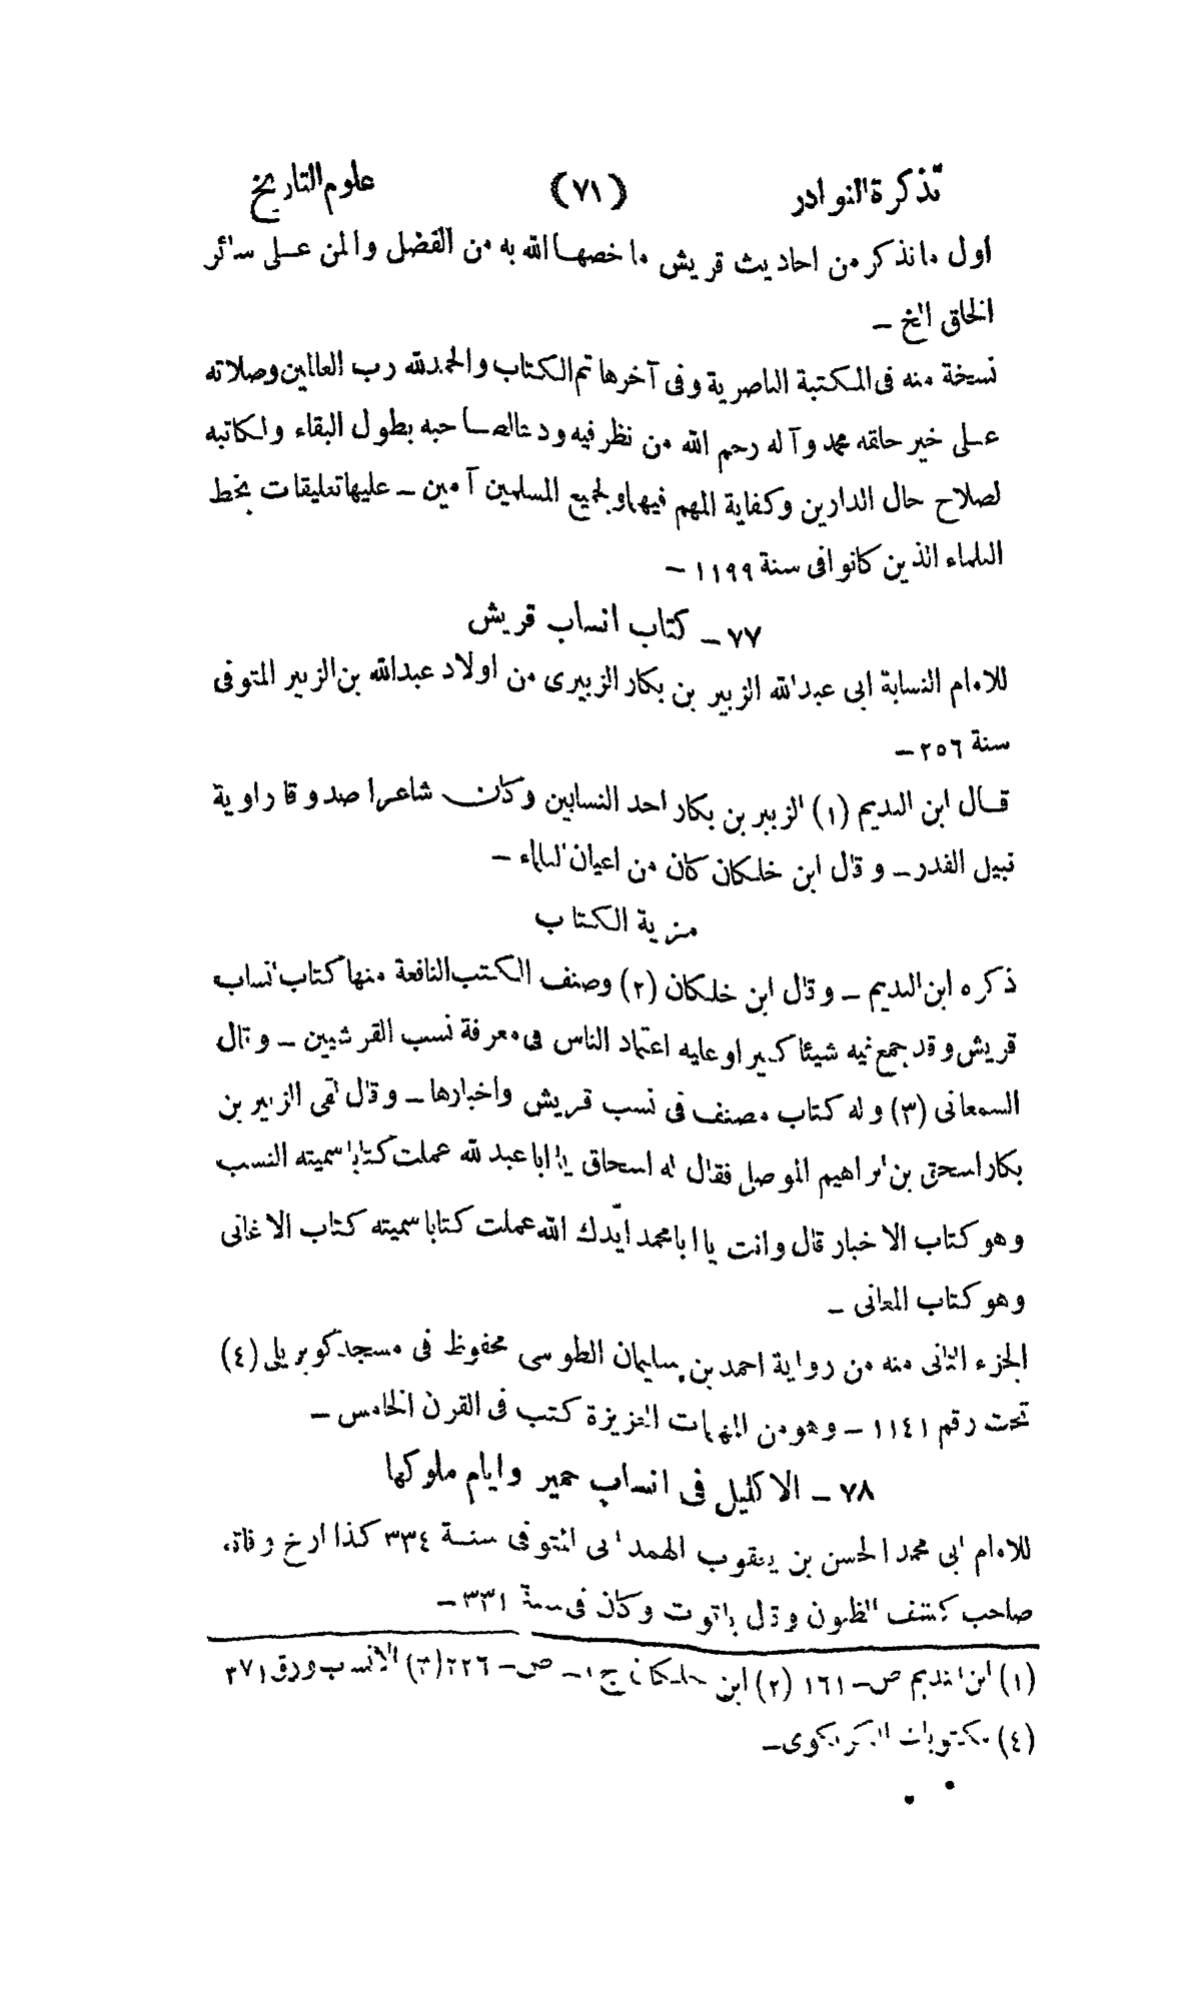 تذكرة النوادر (٧١) علوم التاريخ
اول ما نذكر من احاديث قريش ما خصها الله به من الفضل والمن على سائر
الخلق الخ –
نسخة منه فى المكتبة الناصرية وفى آخرها تم الكتاب والحمد لله رب العالمين وصلاته
على خير خلقه محمد وآله رحم الله من نظر فيه ودعا لصاحبه بطول البقاء ولكاتبه
لصلاح حال الدارين وكفاية المهم فيها ولجميع المسلمين آمين – عليها تعليقات بخط
العلماء الذين كانوا فى سنة ١١٩٩ –
٧٧ – كتاب انساب قريش
للامام النسابة ابى عبد الله الزبير بن بكار الزبيرى من اولاد عبد الله بن الزبير المتوفى
سنة ٢٥٦ –
قال ابن النديم (١) الزبير بن بكار احد النسابين وكان شاعرا صدوقا راوية
نبيل القدر – وقال ابن خلكان كان من اعيان العلماء –
مزية الكتاب
ذكره ابن النديم – وقال ابن خلكان (٢) وصنف الكتب النافعة منها كتاب انساب
قريش وقد جمع فيه شيئا كثيرا وعليه اعتماد الناس فى معرفة نسب القرشيين – وقال
السمعانى (٣) وله كتاب مصنف فى نسب قريش واخبارها – وقال لقى الزبير بن
بكار اسحق بن ابراهيم الموصلى فقال له اسحاق يا ابا عبد الله عملت كتابا سميته النسب
وهو كتاب الاخبار قال وانت يا ابا محمد ايّدك الله عملت كتابا سميته كتاب الاغانى
وهو كتاب المعانى –
الجزء الثانى منه من رواية احمد بن سليمان الطوسى محفوظ فى مسجد كوبريلى (٤)
تحت رقم ١١٤١ – وهو من المهمات العزيزة كتب فى القرن الخامس –
٧٨ – الاكليل فى انساب حمير وايام ملوكها
للامام ابى محمد الحسن بن يعقوب الهمدانى المتوفى سنة ٣٣٤ كذا ارخ وفاته
صاحب كشف الظنون وقال ياقوت وكان فى سنة ٣٣١ –
(١) ابن النديم ص – ١٦١ (٢) ابن خلكان ج ١ – ص – ٢٢٦ (٣) الانسب ورق ٢٧١
(٤) مكتوبات الكرنكوى –